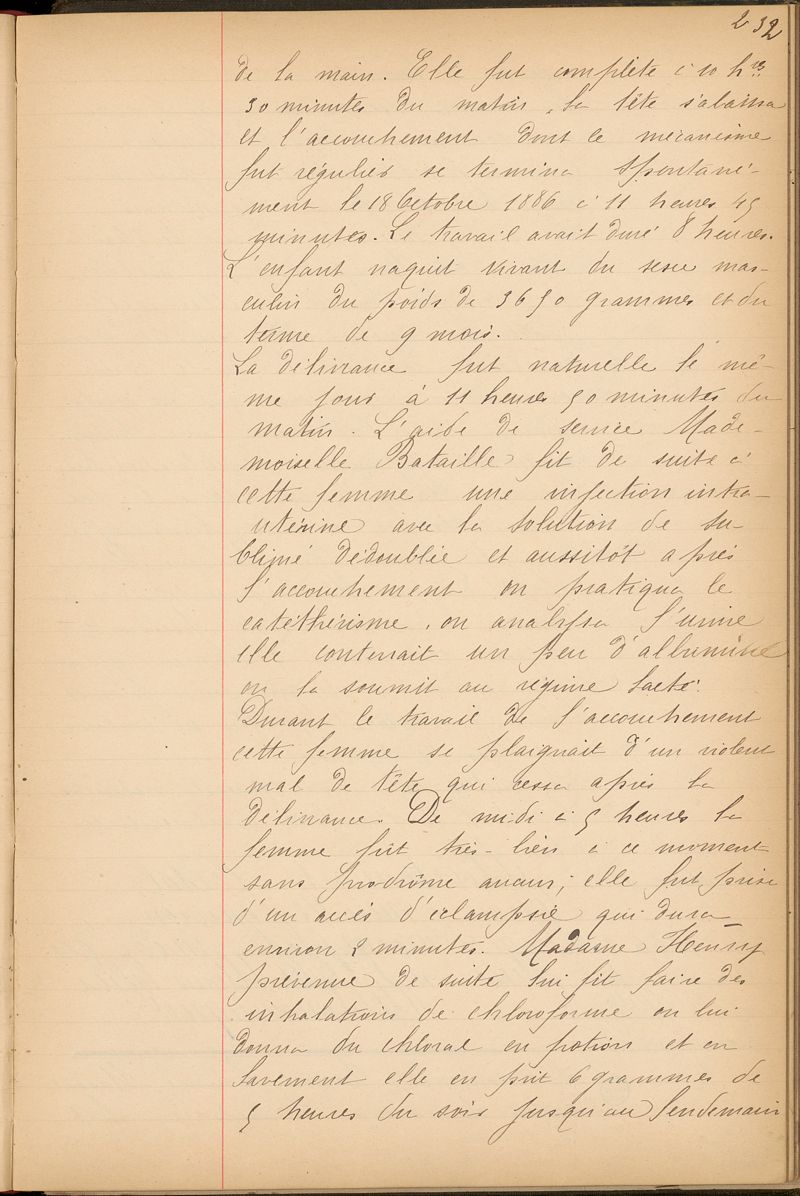 232
de la main. Elle fut complète à 10 hres
30 minutes du matin, la tête s'abaissa
et l'accouchement dont le mécanisme
fut régulier se termina spontané-
ment le 18 Octobre 1886 à 11 heures 45
minutes. Le travail avait duré 8 heures.
L'enfant naquit vivant du sexe mas-
culin du poids de 3650 grammes et du
terme de 9 mois.
La délivrance fut naturelle le mê-
me jour à 11 heures 50 minutes du
matin. L'aide de service Made-
moiselle Bataille fit de suite à
cette femme une injection intra-
utérine avec la solution de su-
blimé dédoublée et aussitôt après
l'accouchement on pratiqua le
catéthérisme, on analysa l'urine
elle contenait un peu d'albumine
on la soumit au régime lacté.
Durant le travail de l'accouchement
cette femme se plaignait d'un violent
mal de tête qui cessa après la
délivrance. De midi à 5 heures la
femme fût très-bien à ce moment
sans prodrôme aucun; elle fut prise
d'un accès d'éclampsie qui dura
environ 2 minutes. Madame Henry
prévenue de suite lui fit faire des
inhalations de chloroforme on lui
donna du chloral en potion et en
lavement elle en prit 6 grammes de
5 heures du soir jusqu'au lendemain